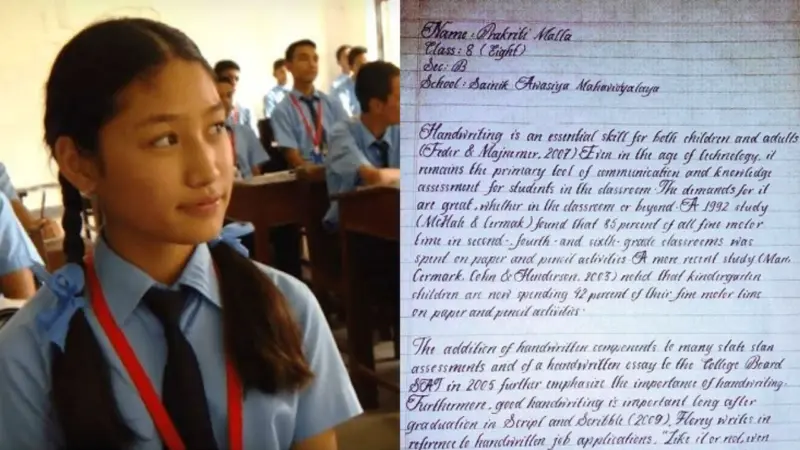 Name : Prakriti Malla
Class : 8 (Eight)
Sec : B
School : Sainik Awasiya Mahavidyalaya
Handwriting is an essential skill for both children and adults
(Feder & Majnemer, 2007) Even in the age of technology, it
remains the primary tool of communication and knowledge
assessment for students in the classroom. The demands for it
are great, whether in the classroom or beyond. A 1992 study
(McHale & Cermak) found that 85 percent of all fine motor
time in second-, fourth- and sixth-grade classrooms was
spent on paper and pencil activities A more recent study (Marr,
Cermark, Cohn & Henderson, 2003) noted that kindergarten
children are now spending 42 percent of their fine motor time
on paper and pencil activities.
The addition of handwritten components to many state stan
assessments and of a handwritten essay to the College Board
SAT in 2005 further emphasize the importance of handwriting.
Furthermore, good handwriting is important long after
graduation in Script and Scribble (2009), Florey writes in
reference to handwritten job applications, "Like it or not, even